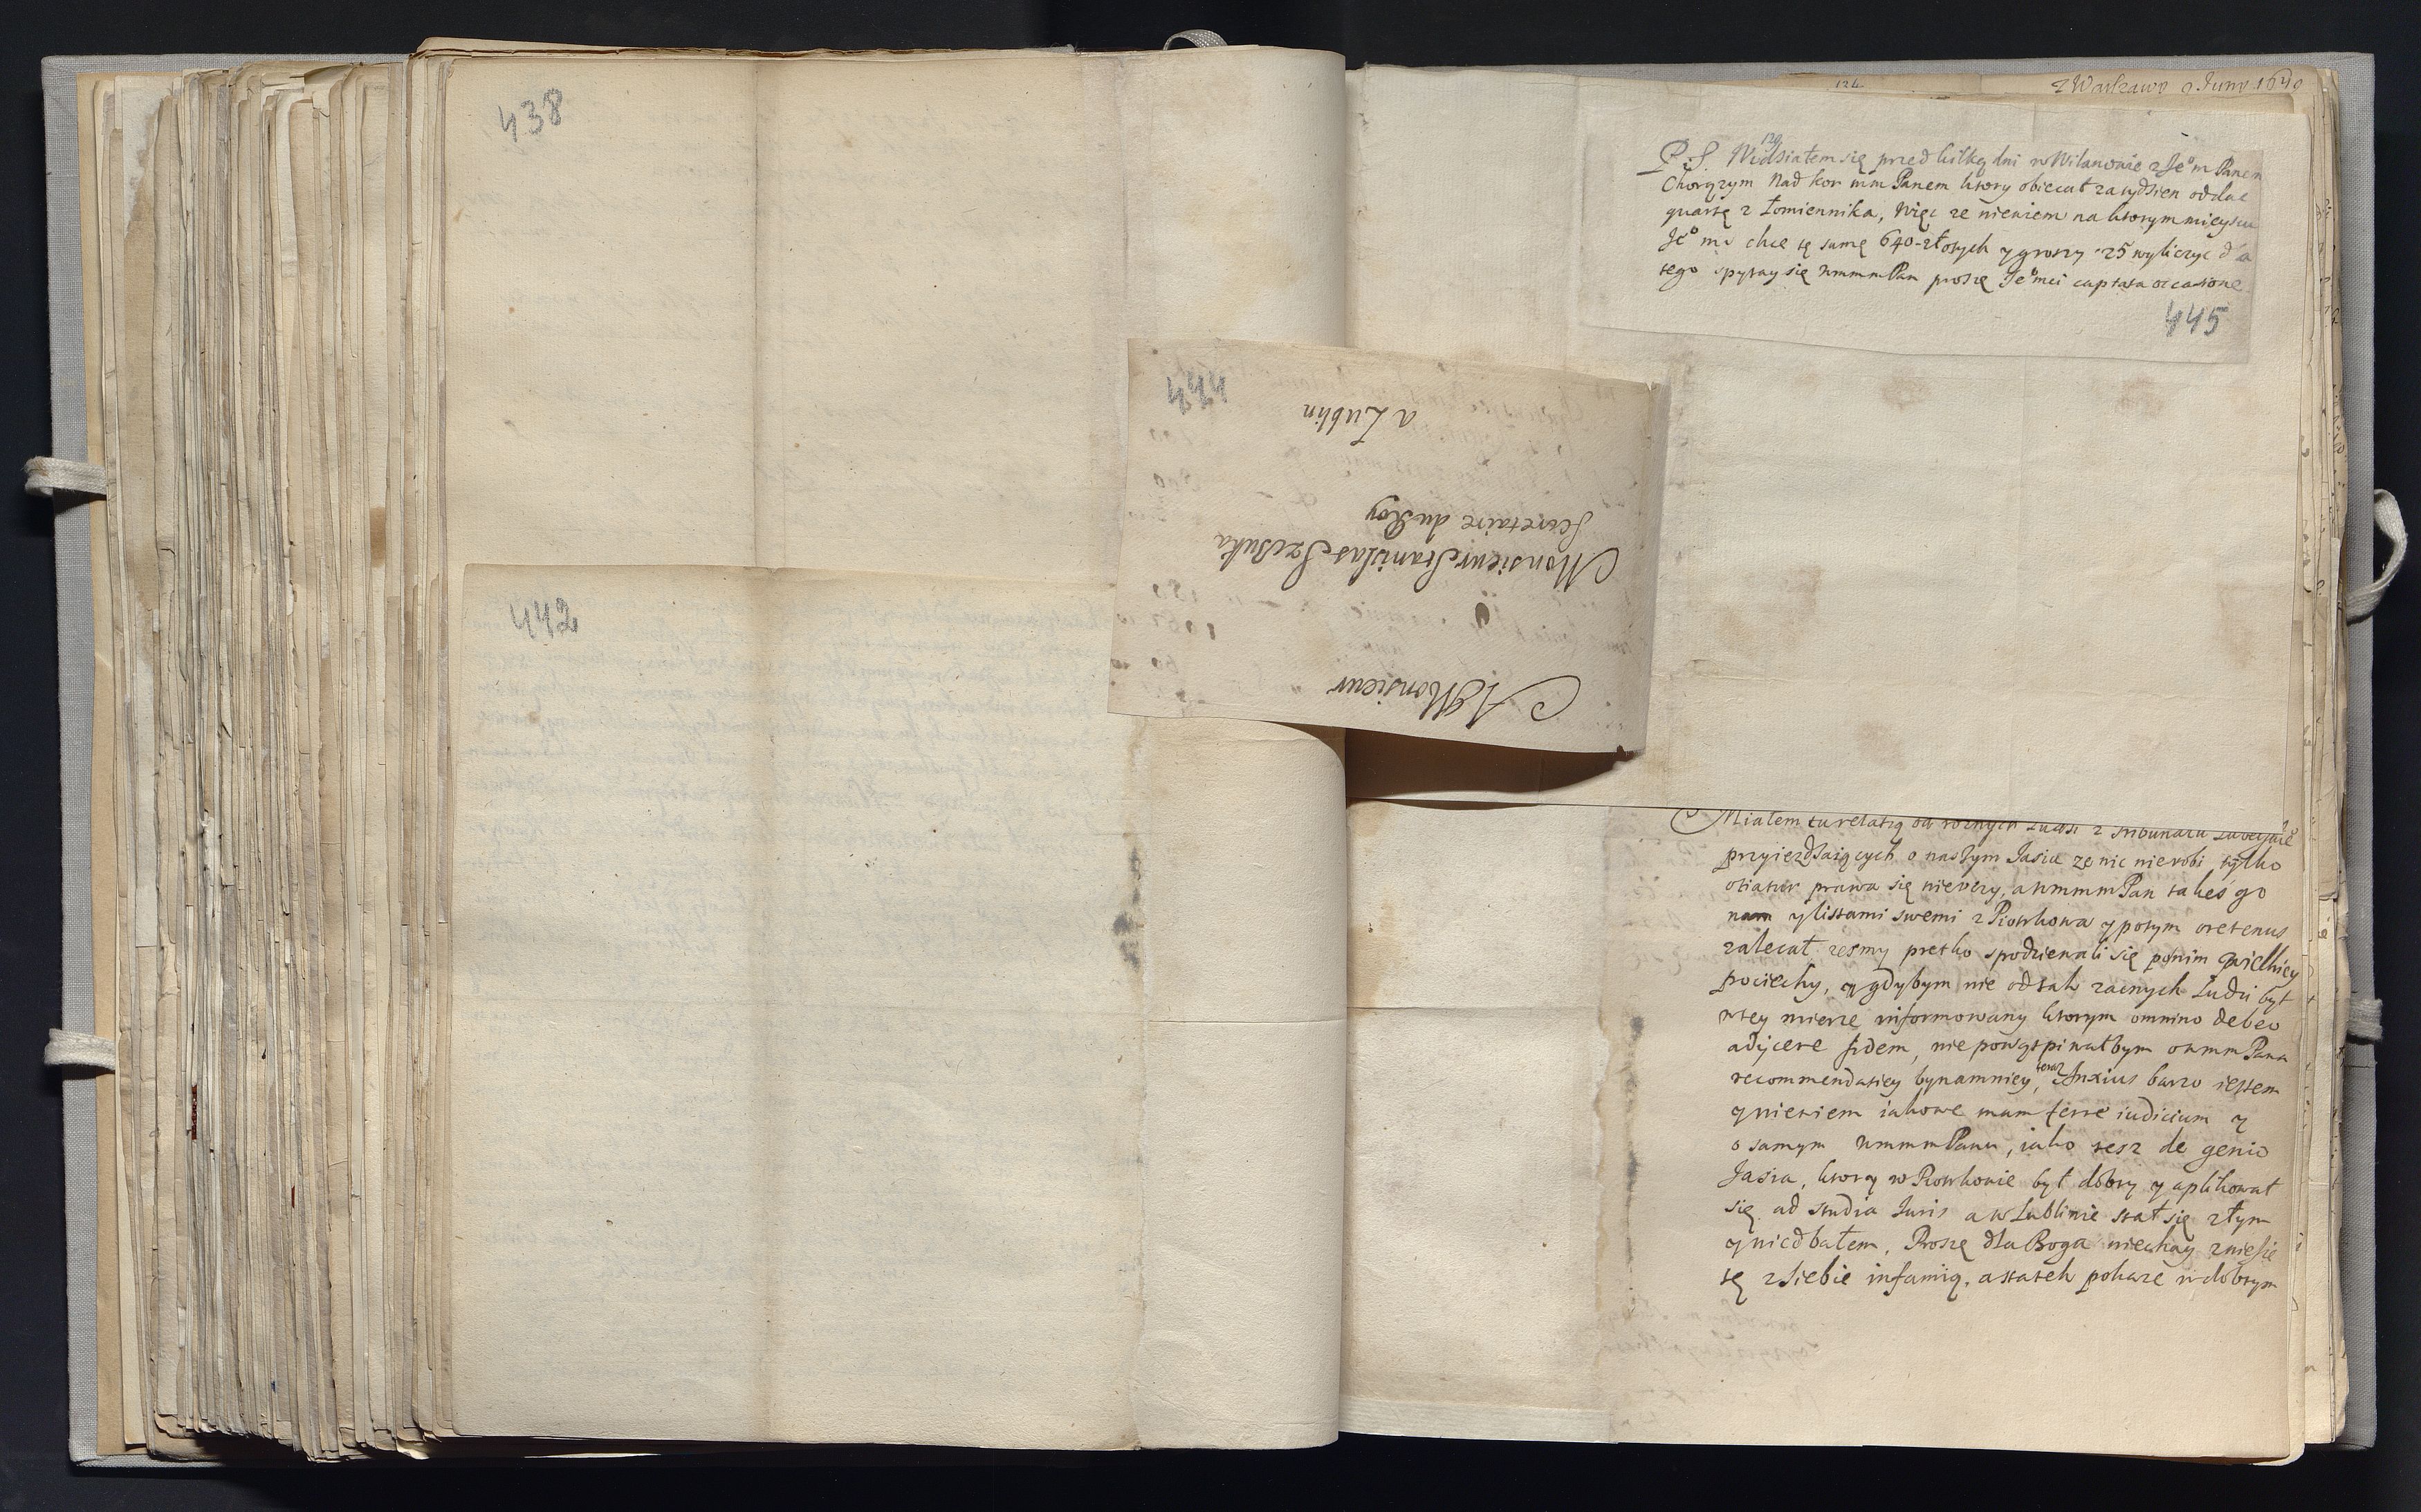 438
442
444
A Monsieur
Monsieur Stanislas Szczuka
Secretaire du Roy
a Lublin
124
z Warszawy 2 Juny 1690
129
P.S. Widziałem się przed kilką dni w Wilanowie z Jeo m Panem
Chorązym Nad kor mm Panem ktory obiecał za tydzien oddac
quartę z Łomiennika, Więc ze niewiem na ktorym mieyscu
Jeo mc chce tę sumę 640-złotych y groszy 25 wyliczyc dla
tego spytay się wmmmPan proszę Jeo mci captata occasione
445
Miałem tu relatią od roznych Ludzi z Tribunału
przyiezdzaiących o naszym Jasiu ze nic nierobi tylko
otiatur prawa się nieuczy, a wmmmPan takes go
nam y listami swemi z Piotrkowa y potym oretenus
zalecał zesmy pretko spodziewali się ponim wielkiey
pociechy, y gdybym nie od tak zacnych Ludzi był
w tey mierze informowany ktorym omnino debeo
adijcere fidem, nie powątpiwałbym o wmm Pana
recommendatiey bynamniey, teraz Anxius barzo iestem
y niewiem iakowe mam ferre iudicium y
o samym wmmmPanu, iako tesz de genio
Jasia, ktory w Piotrkowie był dobry y aplikował
się ad studia Juris a w Lublinie stał się złym
y niedbałem, Proszę dla Boga niechay zniesie
tę z siebie infamią, a statek pokaze w dobrym